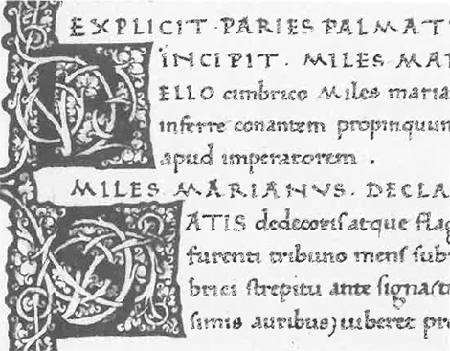 EXPLICIT · PARIES PALMAT
INCIPIT · MILES MAR
BELLO cimbrico Miles maria
inferre conantem propinquum
apud imperatorem .
MILES MARIANVS · DECLA
SATIS dedecoris atque flag
furenti tribuno mens subr
brici strepitu ante signa st
simis auribus) iuberet pr